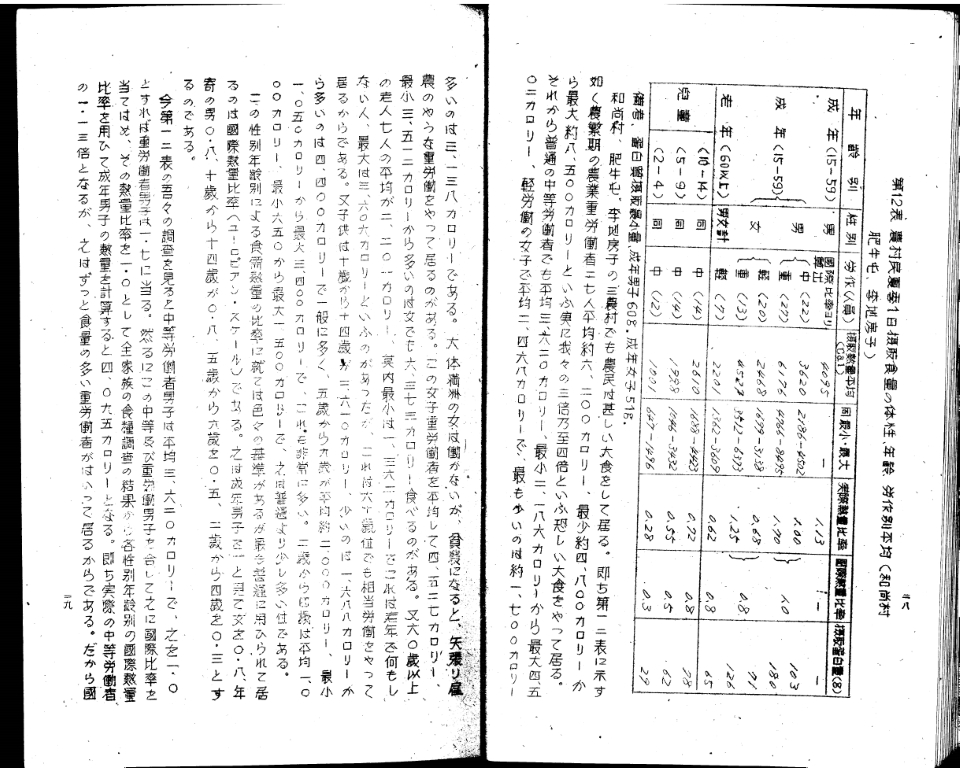 第12表 農村民夏季1日摂取食量の体性、年齢、労作別平均(和尚村
肥牛屯、李地房子)
年齢別 性別 労作(人員) 摂取熱量平均(Cal) 同最小・最大 実際熱量比率 国際熱量比率 摂取蛋白量(g)
成年(15-59) 男 国際比率ヨリ算出 4095 — 1.13 — —
成年(15-59) 男 中(22) 3620 2186-4502 1.00 1.0 103
重(27) 6176 4966-8495 1.70 180
女 軽(20) 2468 1699-3138 0.68 0.8 71
重(13) 4527 3512-6373 1.25 126
老年(60以上) 男女計 軽(7) 2201 1362-3609 0.62 0.8 65
児童 (10-14) 同 中(14) 2610 1688-4423 0.72 0.8 78
(5-9) 同 中(14) 1988 1146-3432 0.55 0.5 62
(2-4) 同 中(12) 1001 647-1496 0.28 0.3 29
備考 蛋白質摂取最小量 成年男子 60g. 成年女子 51g.
和尚村、肥牛屯、李地房子の三農村でも農民は甚しい大食をして居る。即ち第一二表に示す
如く農繁期の農業重労働者二七人平均約六、二〇〇カロリー、最少約四、八〇〇カロリーか
ら最大約八、五〇〇カロリーといふ実に我々の三倍乃至四倍といふ恐しい大食をやって居る。
それから普通の中等労働者でも平均三、六二〇カロリー、最小二、一八六カロリーから最大四五
〇二カロリー、軽労働の女子で平均二、四六八カロリーで、最も少いのは約一、七〇〇カロリー
多いのは三、一三八カロリーである。大体満洲の女は働かないが、貧農になると、矢張り雇
農のやうな重労働をやって居るのがある。この女子重労働者を平均して四、五二七カロリー、
最小三、五一二カロリーから多いのは女でも六、三七三カロリー食べるのがある。又六〇歳以上
の老人七人の平均が二、二〇一カロリー、其内最小は一、三六二カロリーでこれは老年で何もし
ない人、最大は三、六〇九カロリーといふのがあったが、これは六十歳位でも相当労働をやって
居るからである。又子供は十歳から十四歳が二、六一〇カロリー、少いのは一、六八八カロリーか
ら多いのは四、四〇〇カロリーで一般に多く、五歳から九歳が平均約二、〇〇〇カロリー、最小
一、〇五〇カロリーから最大三、四〇〇カロリーで、これも非常に多い。二歳から四歳は平均一、〇
〇〇カロリー、最小六五〇から最大一、五〇〇カロリーで、之は普通より少し多い位である。
この性別年齢別による食物熱量の比率に就ては色々の基準があるが最も普通に用ひられて居
るのは国際熱量比率(ユーロピアン・スケール)である。之は成年男子を一と見て女を〇・八、年
寄の男〇・八、十歳から十四歳が〇・八、五歳から九歳を〇・五、二歳から四歳を〇・三とす
るのである。
今第一二表の吾々の調査を見ると中等労働者男子は平均三、六二〇カロリーで、之を一・〇
とすれば重労働者男子は一・七に当る。然るにこの中等及び重労働男子を合して之に国際比率を
当てはめ、その熱量比率を一・〇として全家族の食糧調査の結果から各性別年齢別の国際熱量
比率を用ひて成年男子の熱量を計算すると四、〇九五カロリーとなる。即ち実際の中等労働者
の一・一三倍となるが、之はずっと食量の多い重労働者がはいって居るからである。だから国
二九